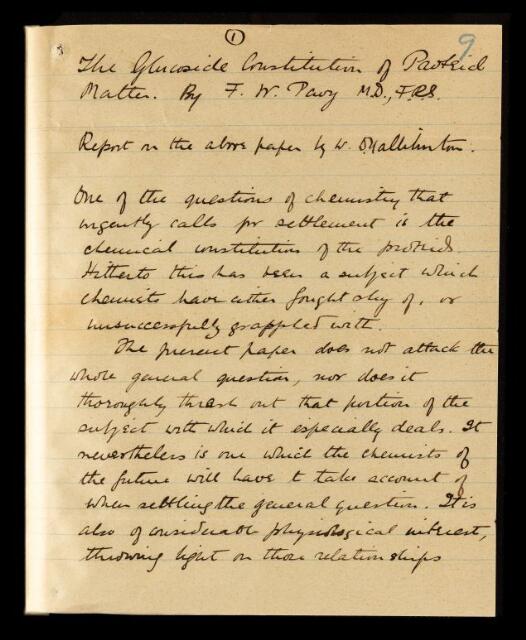 ①
9
The Glucoside Constitution of Proteid
Matter. By F. W. Pavy M.D., F.R.S.
Report on the above paper by W. D. Halliburton.
One of the questions of chemistry that
urgently calls for settlement is the
chemical constitution of the proteids
Hitherto this has been a subject which
chemists have either fought shy of, or
unsuccessfully grappled with.
The present paper does not attack the
whole general question, nor does it
thoroughly thrash out that portion of the
subject with which it especially deals. It
nevertheless is one which the chemists of
the future will have to take account of
when settling the general question. It is
also of considerable physiological interest,
throwing light on those relationships